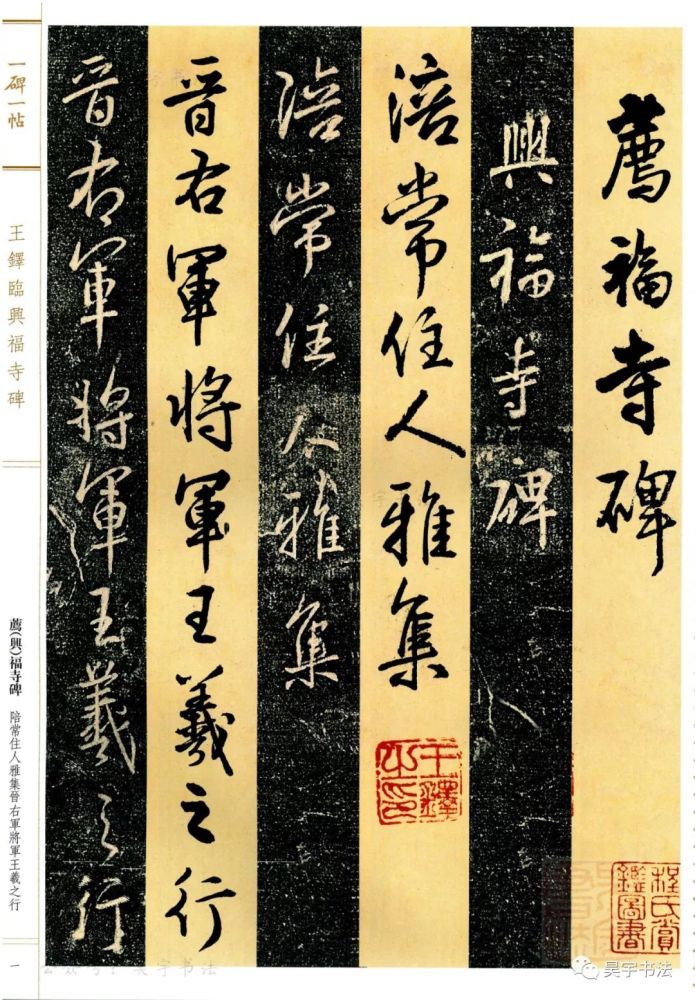 薦福寺碑
興福寺碑
涪常住人雅集
陪常住人雅集
晋右軍将軍王羲之行
晋右軍将軍王羲之行
王鐸之印
程氏賞鑑圖書
一碑一帖
王鐸臨興福寺碑
薦(興)福寺碑 陪常住人雅集晉右軍將軍王羲之行
一
公众号:昊宇书法
昊宇书法